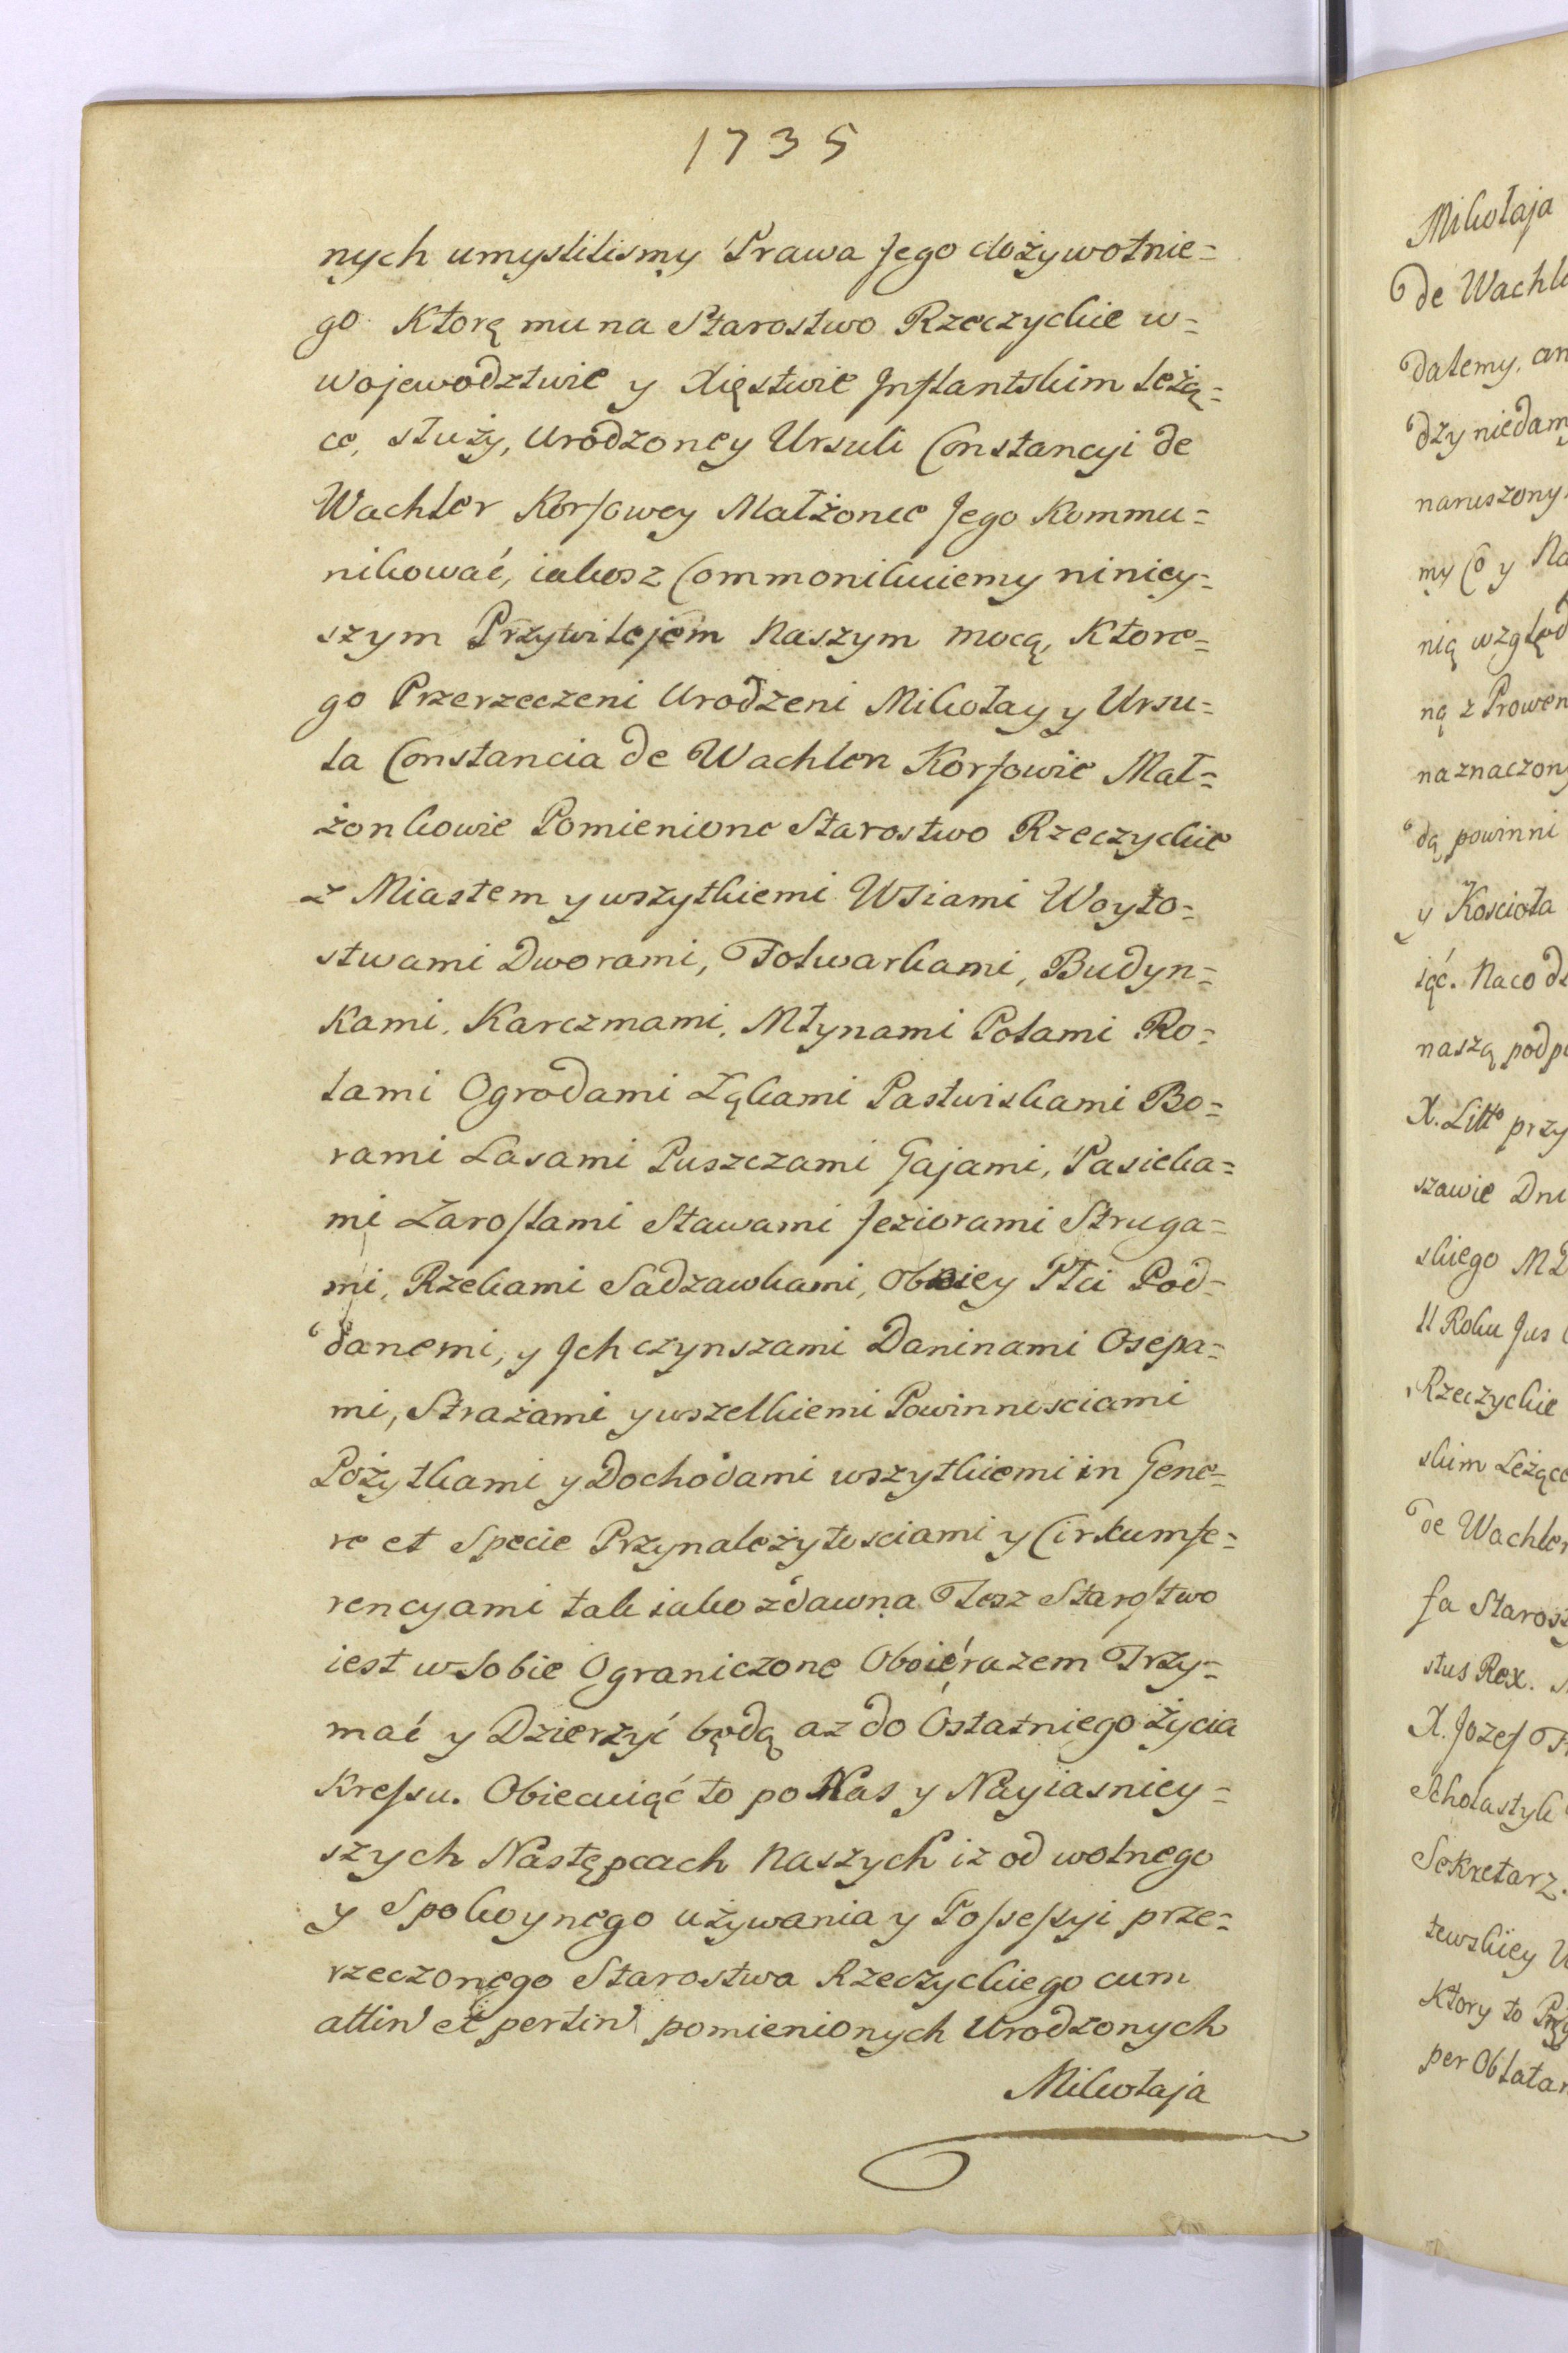 1735
nych umyslilismy Prawa Jego dożywotnie=
go Ktorę mu na Starostwo Rzeczyckie w=
wojewodztwie y Xięstwie Inflantskim leżą=
ce, służy, Urodzoney Ursuli Constancyi de
Wachler Korfowey Małżonce Jego Kommu=
nikować, iakosz Commonikuiemy niniey=
szym Przywilejem Naszym mocą, Ktore=
go Przerzeczeni Urodzeni Mikołay y Ursu=
la Constancia de Wachlen Korfowie Mał=
żonkowie Pomienione Starostwo Rzeczyckie
z Miastem y wszytkiemi Wsiami Woyto=
stwami Dworami, Folwarkami, Budyn=
Kami, Karczmami, Młynami Polami Ro=
lami Ogrodami Łąkami Pastwiskami Bo=
rami Lasami Puszczami Gajami, Pasieka=
mi Zaroslami Stawami Jeziorami Struga=
mi, Rzekami Sadzawkami, oboiey Płci Pod=
danemi, y Ich czynszami Daninami Osepa=
mi, Strażami y wszelkiemi Powinnosciami
Pożytkami y Dochodami wszytkiemi in Gene=
re et Specie Przynależytosciami y Cirkumfe=
rencyami tak iako zdawna Tesz Starostwo
iest w Sobie Ograniczone Oboie razem Trzy=
mać y Dzierzyć będą az do Ostatniego Życia
Kressu. Obiecuiąć to po Nas y Nayiasniey=
szych Następcach Naszych iz od wolnego
y Spokoynego używania y Possessyi prze=
rzeczonego Starostwa Rzeczyckiego cum
attin' et pertin' pomienionych Urodzonych
Mikołaja
Mikołaja
de Wachle
dalemy, an
dzy niedamy
naruszony
my Co y Na
nią względ
ną z Prowen
naznaczony
dą powinni
y Kosciola
ięć. Naco dl
naszą podpi
X. Litto przy
szawie Dni
skiego
II Roku Jus
Rzeczyckie
skim Leżące
de Wachler
fa Starosz
stus Rex.
X. Jozef
Scholastyk
Sekretarz.
tewskiey
Ktory to
per Oblatam